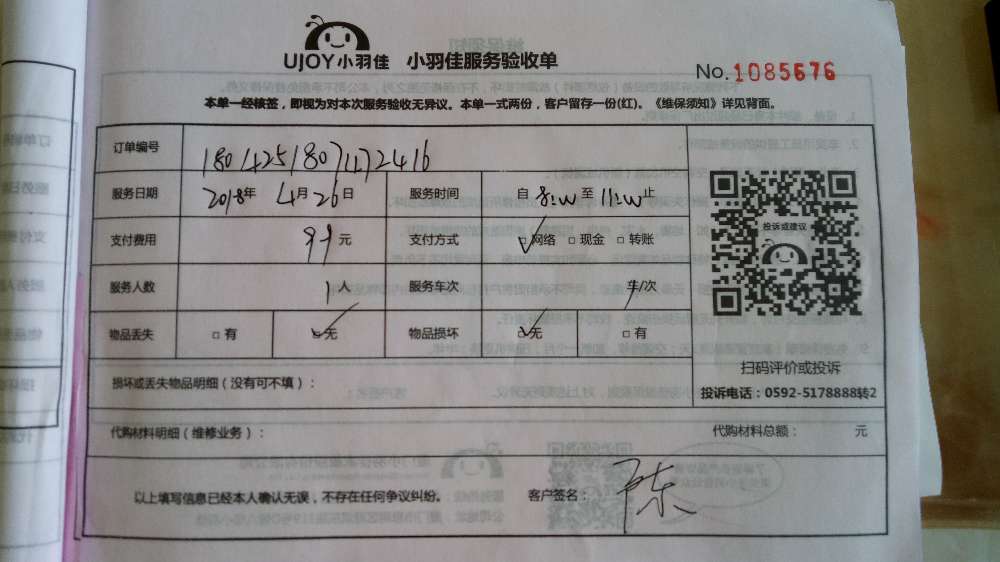 UJOY小羽佳 小羽佳服务验收单
No.1085676
本单一经核签，即视为对本次服务验收无异议。本单一式两份，客户留存一份(红)。《维保须知》详见背面。
订单编号 180425180711472416
服务日期 2018年 4月26日 服务时间 自 8:00 至 11:00 止
支付费用 99元 支付方式 ☑网络 □现金 □转账
投诉或建议
服务人数 1人 服务车次 车/次
物品丢失 □有 ☑无 物品损坏 ☑无 □有
扫码评价或投诉
损坏或丢失物品明细（没有可不填）：
投诉电话：0592-5178888转2
代购材料明细（维修业务）： 代购材料总额： 元
以上填写信息已经本人确认无误，不存在任何争议纠纷。 客户签名： 陈